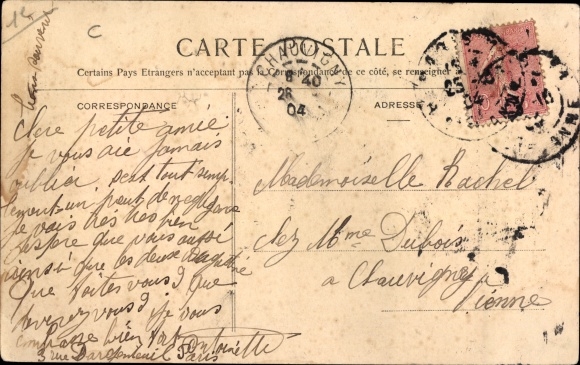 CARTE POSTALE
Certains Pays Etrangers n'acceptant pas la Correspondance de ce côté, se renseigner
CORRESPONDANCE
ADRESSE
CHAUVIGNY
8 40
28
04
Chère petite amie
je vous aie jamais
oublier, sest tout simp-
lement un peut de neglijens
je vais très très bien
jespère que vous aussi
ainsi que les deux
Que faites vous d que
devenez vous d je vous
embrasse bien fort
Antoinette
3 rue Dargenteuil Paris
Mademoiselle Rachel
chez Mme Dubois
a Chauvigny
Vienne